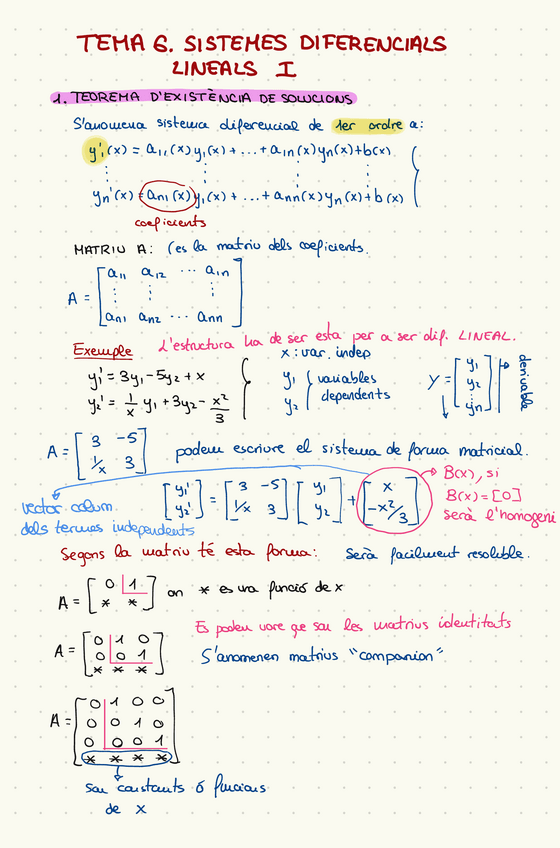 TEMA 6. SISTEMES DIFERENCIALS
LINEALS I
1. TEOREMA D'EXISTÈNCIA DE SOLUCIONS
S'anomena sistema diferencial de 1er ordre a:
y₁'(x) = a₁₁(x)y₁(x) + ... + a₁n(x)yn(x)+b(x)
⋮ ⋮ ⋮
yn'(x) = an₁(x)y₁(x) + ... + ann(x)yn(x)+b(x)
coeficients
MATRIU A: (es la matriu dels coeficients.
A = [a₁₁ a₁₂ ... a₁n
⋮ ⋮ ⋮
an₁ an₂ ... ann]
L'estructura ha de ser esta per a ser dif. LINEAL.
Exemple
x: var. indep
y₁' = 3y₁-5y₂ + x
y₂' = 1/x y₁ + 3y₂ - x²/3
y₁ y₂ { variables
dependents
Y = [y₁ y₂ ⋮ yn]
derivable
A = [3 -5
1/x 3]
podem escriure el sistema de forma matricial.
[y₁' y₂'] = [3 -5 1/x 3] · [y₁ y₂] + [x -x²/3]
B(x), si
B(x) = [0]
serà l'homogeni
vector colum.
dels termes independents
Segons la matriu té esta forma: Serà facilment resoluble.
A = [0 1
* *] on * es una funció de x
Es poden vore qe son les matrius identitats
A = [0 1 0
0 0 1
* * *]
S'anomenen matrius "companion"
A = [0 1 0 0
0 0 1 0
0 0 0 1
* * * *]
son constants ó funcions
de x